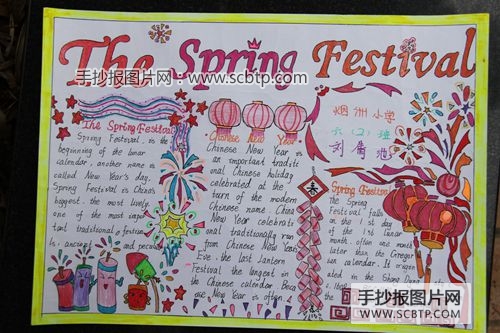 The Spring Festival
手抄报图片网：www.scbtp.com
The Spring Festival
Spring Festival, is the
beginning of the lunar
calendar, another name is
called New Year's day,
Spring Festival is China's
biggest, the most lively,
one of the most impor
tant traditional festival
is ancient and peculiar
Chinese New Year
Chinese New Year is
an important traditi
onal Chinese holiday
celebrated at the
turn of the modern
Chinese name, China
New Year celebrati
onal traditionally ran
from Chinese New Year
Eve the last Lantern
Festival the longest in
the Chinese calendar. Beca
New Year is often
小学
六（2）班
刘
Spring Festival
The Spring
Festival falls
on the 1st day
of the 1st lunar
month. often one month
later than the Gregor
ian calendar. It origin
ated in the Shang
手抄报图片网
www.scbtp.com